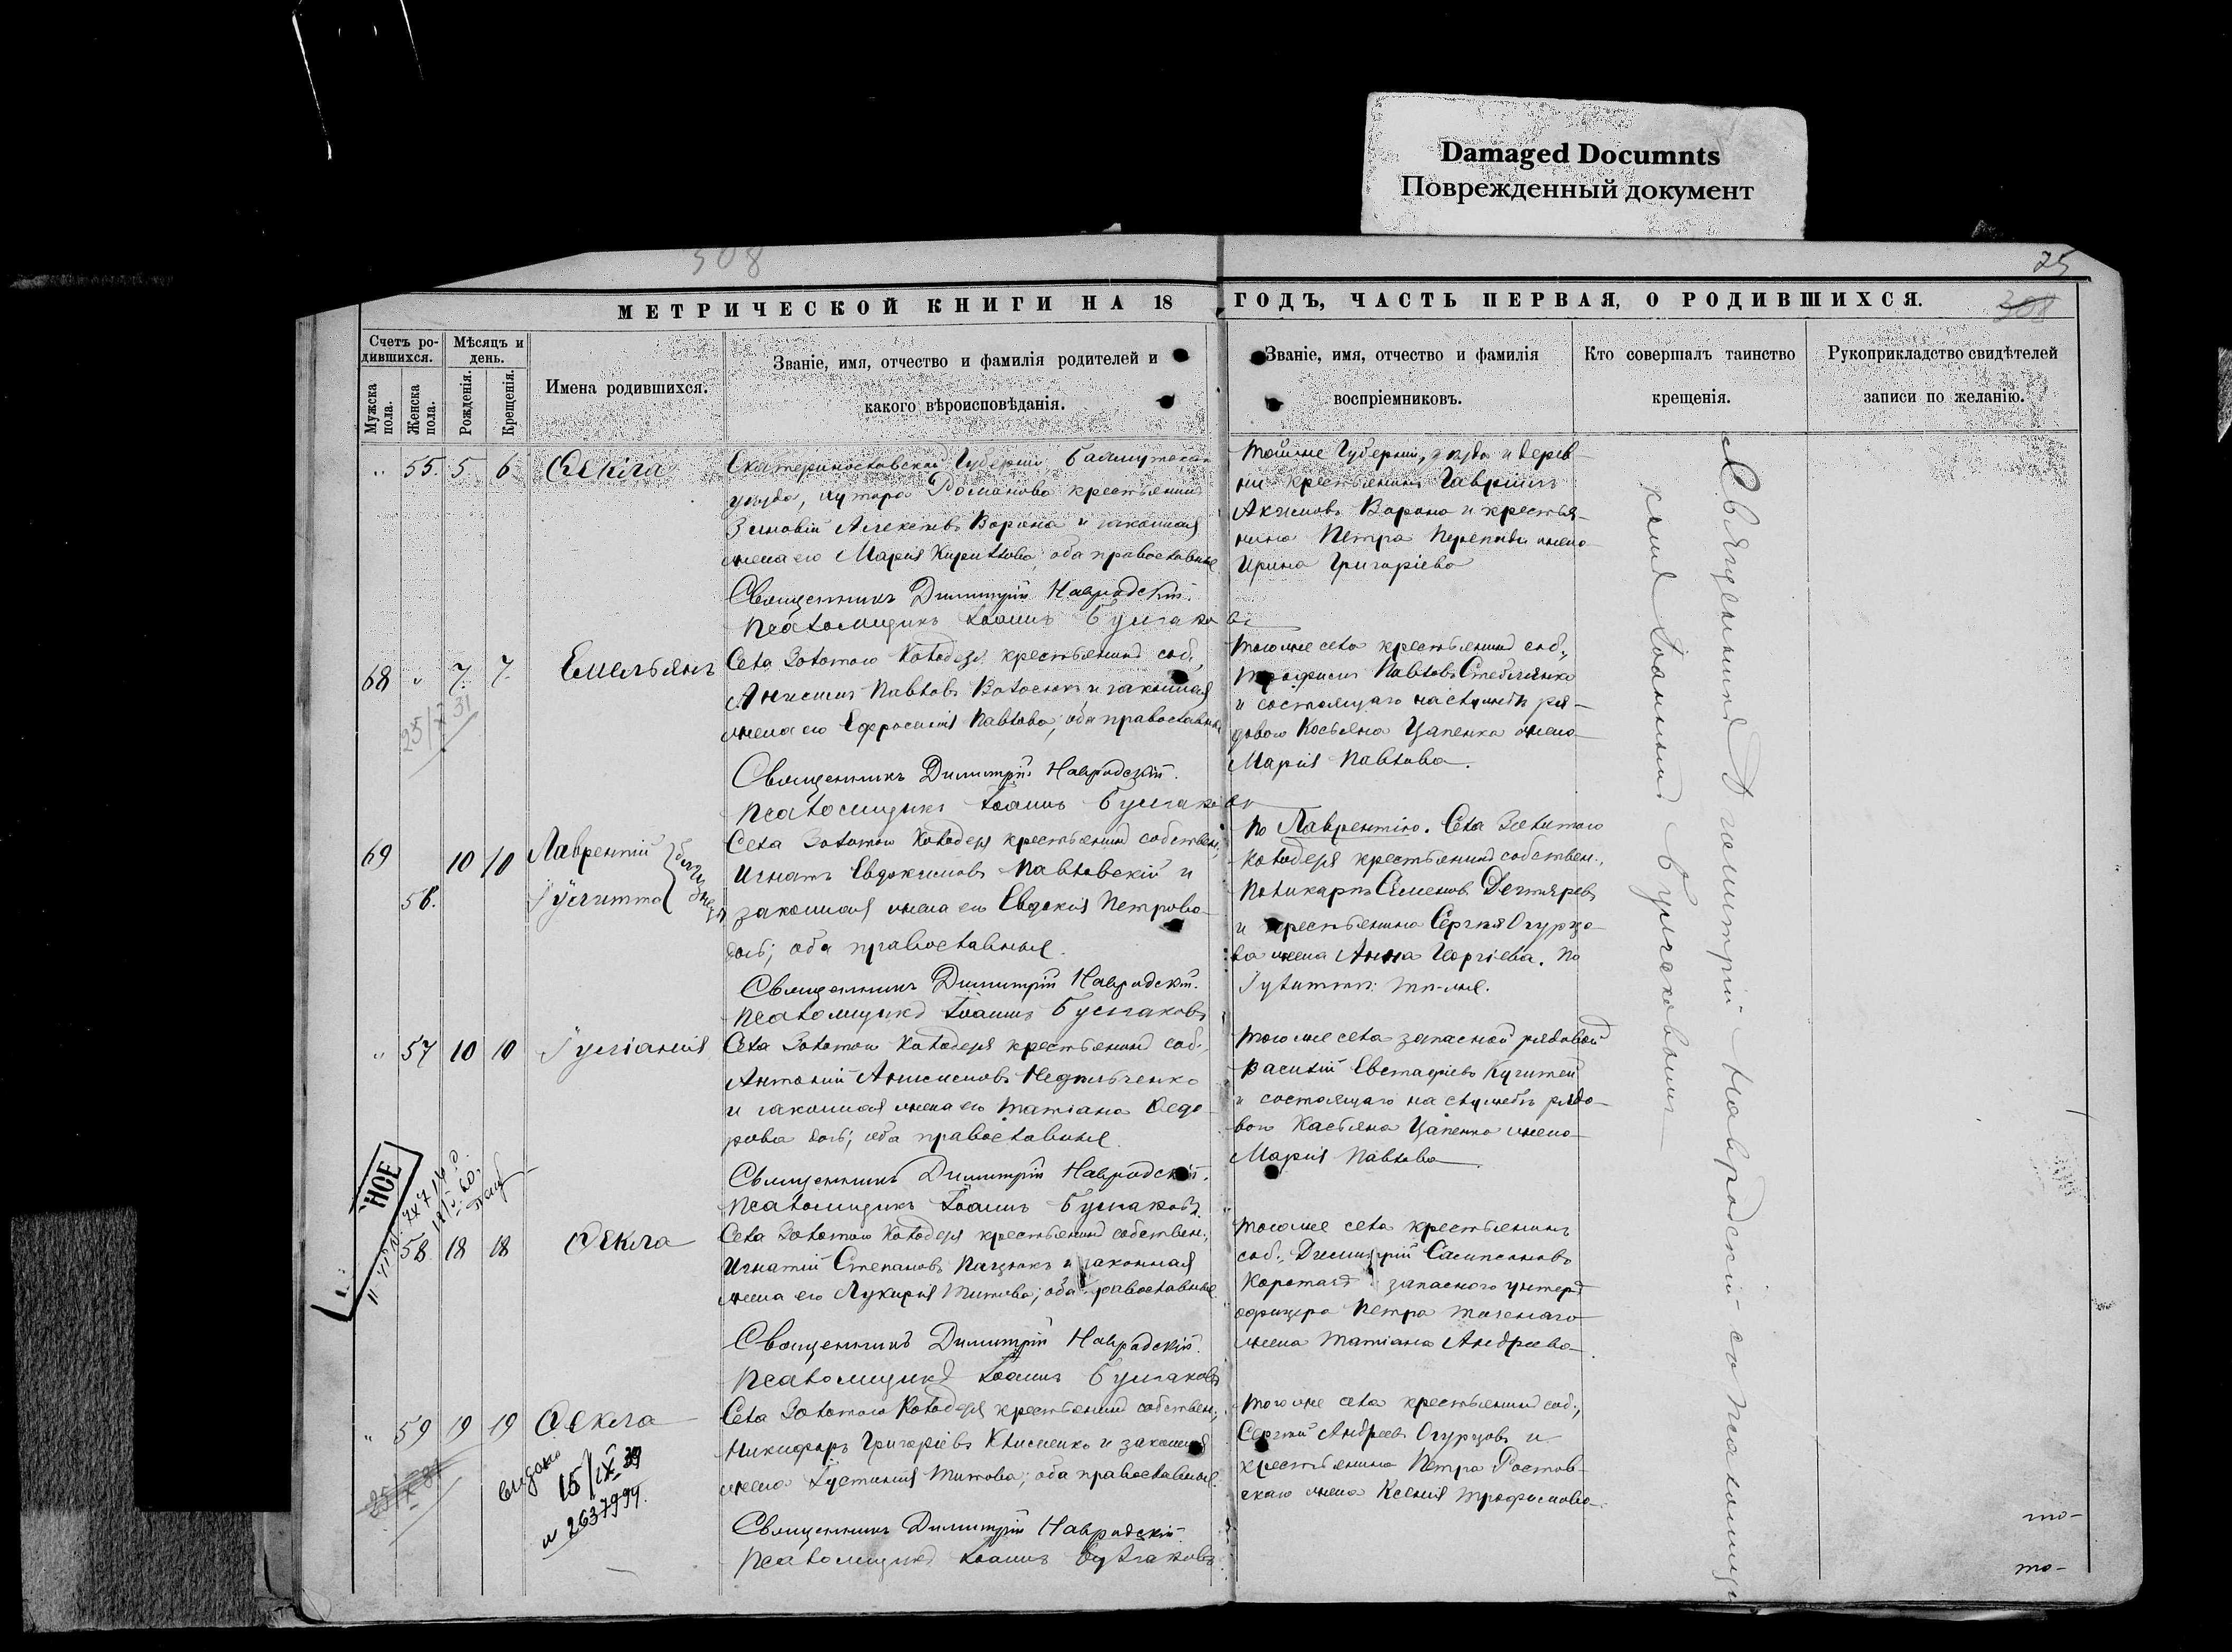 Damaged Documnts
Поврежденный документ
308
25
МЕТРИЧЕСКОЙ КНИГИ НА 18 ГОДЪ, ЧАСТЬ ПЕРВАЯ, О РОДИВШИХСЯ.
308
Счетъ ро-
дившихся.
Мужска
пола.
Женска
пола.
Мѣсяцъ и
день.
Рожденія.
Крещенія.
Имена родившихся.
Званіе, имя, отчество и фамилія родителей и
какого вѣроисповѣданія.
Званіе, имя, отчество и фамилія
воспріемниковъ.
Кто совершалъ таинство
крещенія.
Рукоприкладство свидѣтелей
записи по желанію.
" 55. 5 6 Ѳекла
Екатеринославской Губерніи Бахмутскаго
уѣзда, хутора Романова крестьянинъ
Зиновій Алексѣевъ Ворона и законная
жена его Марія Кириллова; оба православные
Священникъ Димитрій Навродскій.
Псаломщикъ Іоаннъ Булгаковъ
Той же Губерніи, уѣзда и дерев-
ни крестьянинъ Гавріилъ
Акимовъ Ворона и крестья-
нина Петра жена
Ирина Григоріева
68 " 7. 7. Емельянъ
25/X 31
Села Золотого Колодезя крестьянинъ соб.,
Анисимъ Павловъ и законная
жена его Ефросинія Павлова; оба православные
Священникъ Димитрій Навродскій.
Псаломщикъ Іоаннъ Булгаковъ
Того же села крестьянинъ соб.,
Трофимъ Павловъ Стеблянко
и состоящаго на службѣ ря-
дового Косьяна Цапенка жена
Марія Павлова.
69 10 10 Лаврентій
56. Іулитта
близнецы
Села Золотого Колодезя крестьянинъ собствен.,
Игнатъ Евдокимовъ Павловскій и
законная жена его Евдокія Петрова
дочь; оба православные.
Священникъ Димитрій Навродскій.
Псаломщикъ Іоаннъ Булгаковъ
По Лаврентію. Села Золотого
Колодезя крестьянинъ собствен.,
Поликарпъ Семеновъ Дегтяревъ
и крестьянина Сергѣя Огурцо-
ва жена Анна Георгіева. По
Іулиттѣ: тѣ-же.
" 57 10 10 Іуліанія
Села Золотого Колодезя крестьянинъ соб.,
Антоній Анисимовъ Недѣльченко
и законная жена его Татіана Ѳедо-
рова дочь; оба православные.
Священникъ Димитрій Навродскій.
Псаломщикъ Іоаннъ Булгаковъ.
Того же села запасной рядовой
Василій Евстафіевъ
и состоящаго на службѣ рядо-
вого Касьяна Цапенко жена
Марія Павлова
НОЕ
58. 18 18 Ѳекла
Села Золотого Колодезя крестьянинъ собствен.,
Игнатій Степановъ Пацюкъ и законная
жена его Лукерія Титова; оба православные.
Священникъ Димитрій Навродскій.
Псаломщикъ Іоаннъ Булгаковъ
Того же села крестьянинъ
соб., Димитрій Сампсоновъ
запасного унтеръ
офицера Петра
жена Татіана Андреева.
" 59 19 19 Ѳекла
25/X 31
видано
15/IX 39
№ 2637994.
Села Золотого Колодезя крестьянинъ собствен.,
Никифоръ Григоріевъ и законная
жена Іустинія Титова; оба православные.
Священникъ Димитрій Навродскій
Псаломщикъ Іоаннъ Булгаковъ
Того же села крестьянинъ соб.,
Сергѣй Андреевъ Огурцовъ и
крестьянина Петра Ростов-
скаго жена Ксенія Трофимова.
Священникъ Димитрій Навродскій съ псаломщи-
комъ Іоанномъ Булгаковымъ
то-
то-